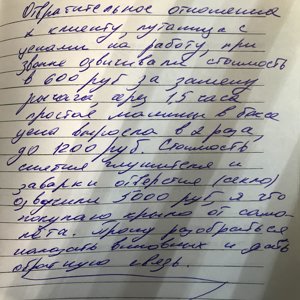 Отвратительное отношение
к клиенту, путаница с
ценами на работу, при
звонке озвучивали стоимость
в 600 руб за замену
рычага через 1,5 часа
простоя машины в боксе
цена выросла в 2 раза,
до 1200 руб. Стоимость
снятия глушителя и
заварки отверстия (секло)
озвучили 5000 руб, я что
покупаю крыло от само-
лёта. Прошу разобраться
наказать виновных и дать
обратную связь.